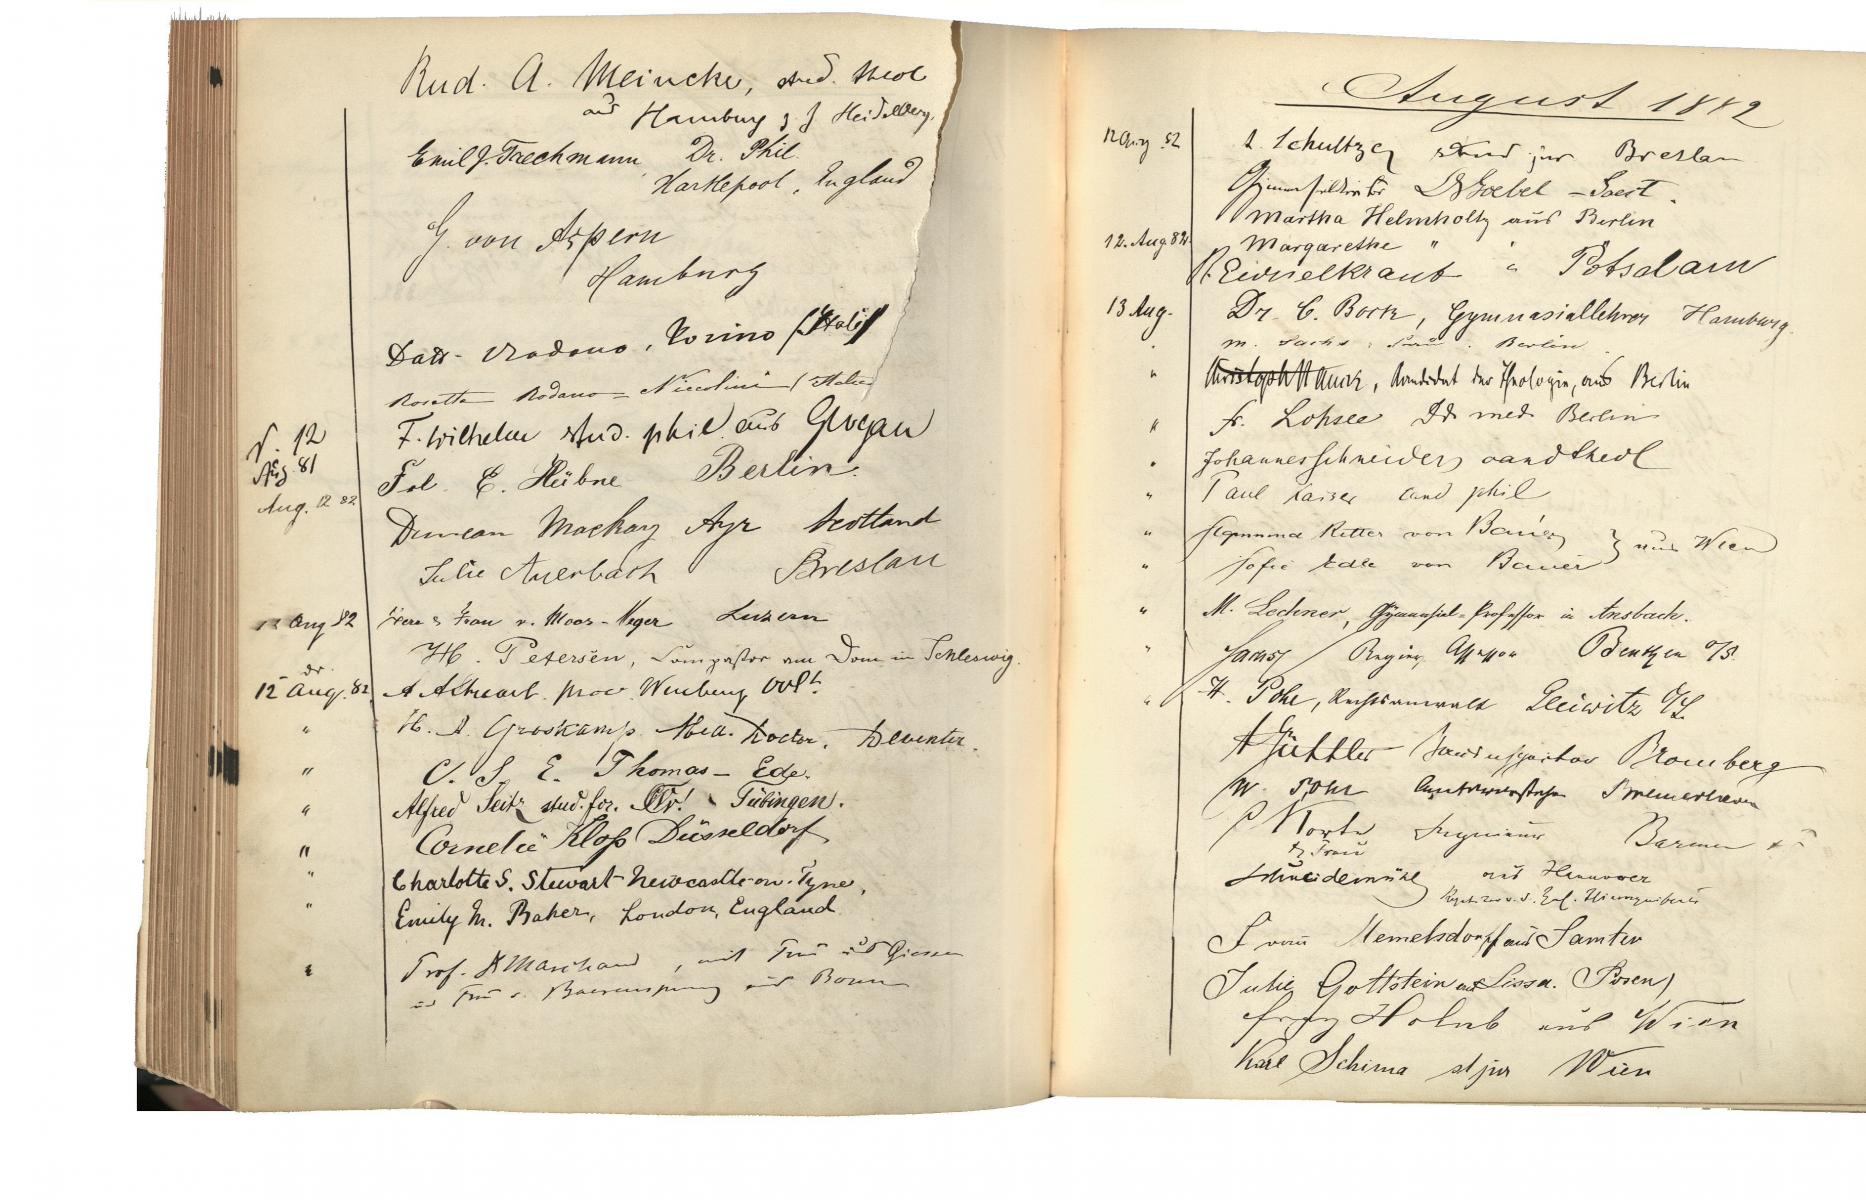 Rud. A. Meincke, stud. theol
aus Hamburg z. Z. Heidelberg.
Emil J. Trechmann, Dr. Phil.
Hartlepool, England
G. von Aspern
Hamburg
Dott. Rodano, Torino (Italy)
Rosetta Rodano = Niccolini (Italia)
F. Wilhelm stud. phil. aus Glogau
12
Aug 81
Frl. E. Hübne Berlin.
Aug. 12 82
Duncan Mackay Ayr Scotland
Julie Auerbach Breslau
Aug 82 Herr & Frau v. Moos-Meyer Luzern
H. Petersen, am Dom in Schleswig.
12 Aug. 82 A
" H. A. Groskamp. Med. Doctor. Deventer.
" C. S. E. Thomas - Ede.
" Alfred Seitz stud. for. Tübingen.
" Cornelie Kloß Düsseldorf
" Charlotte S. Stewart Newcastle-on-Tyne,
" Emily M. Baker, London, England
" Prof. Marchand, mit Frau aus Giessen
Frau v. aus Bonn
August 1882
12 Aug. 82 Schultze stud jur Breslau
Goebel - Soest.
Martha Helmholtz aus Berlin
12. Aug 82. Margarethe " "
" Potsdam
13 Aug. Dr. C. Bock, Gymnasiallehrer Hamburg.
" M. Sachs, Frau, Berlin
" Kandidat der Theologie, aus Berlin
" Fr. Lohsee Dr med Berlin
" Johannes Schneider cand theol
" Paul Kaiser cand phil
" Ritter von Bauer } aus Wien
" Sofie Edle von Bauer
" M. Lechner, Gymnasial-Professor in Ansbach.
" Beuthen O/S.
" H. Pohe, Rechtsanwalt Gleiwitz O/S.
Güttler Bromberg
W. Bremerhaven
Korte Ingenieur Barmen
& Frau
Schneidemühl aus Hannover
Memelsdorf aus Samter
Julie Gottstein aus Lissa. (Posen)
Holub aus Wien
Karl Schima st jur Wien